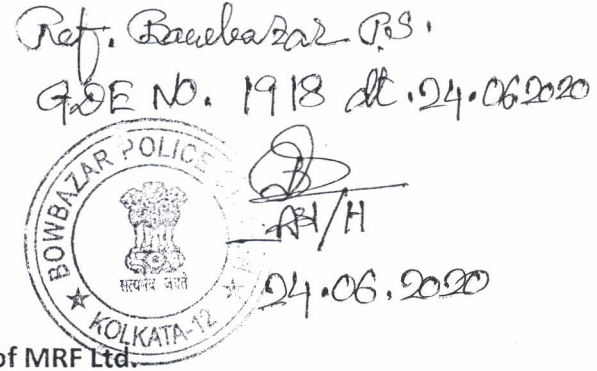 Ref. Bowbazar P.S.
GDE NO. 1918 dt. 24.06.2020
BOWBAZAR POLICE
सत्यमेव जयते
KOLKATA-12
24.06.2020
of MRF Ltd.